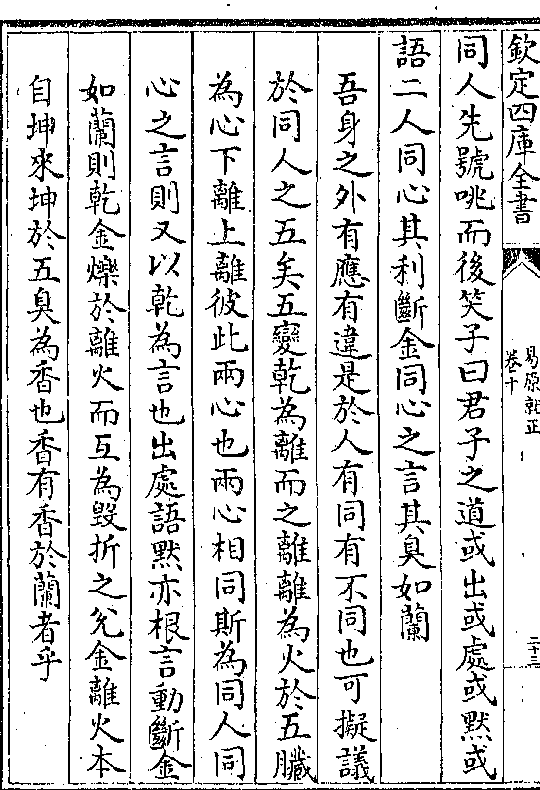 欽定四庫全書
易原就正
卷十
二十三
同人先號咷而後笑子曰君子之道或出或處或黙或
語二人同心其利斷金同心之言其臭如蘭
吾身之外有應有違是於人有同有不同也可擬議
於同人之五矣五變乾為離而之離離為火於五臟
為心下離上離彼此兩心也兩心相同斯為同人同
心之言則又以乾為言也出處語黙亦根言動斷金
如蘭則乾金爍於離火而互為毀折之兊金離火本
自坤來坤於五臭為香也香有香於蘭者乎